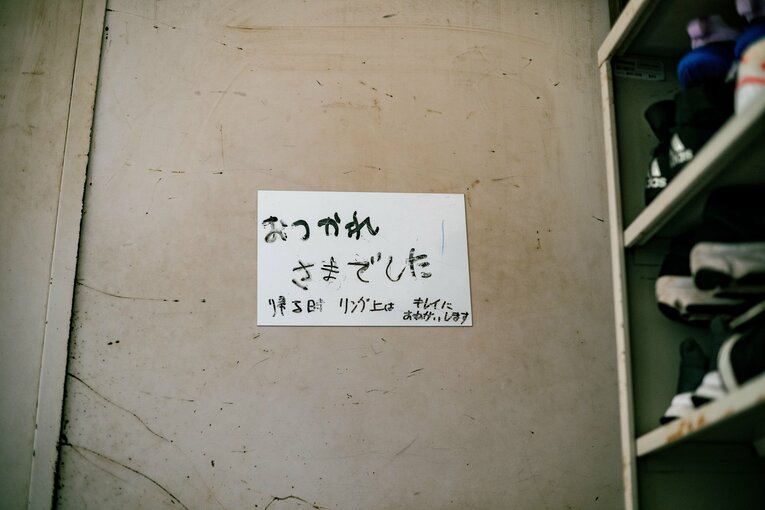 おつかれ
さまでした
帰る時 リング上は キレイに
おねがいします
adidas